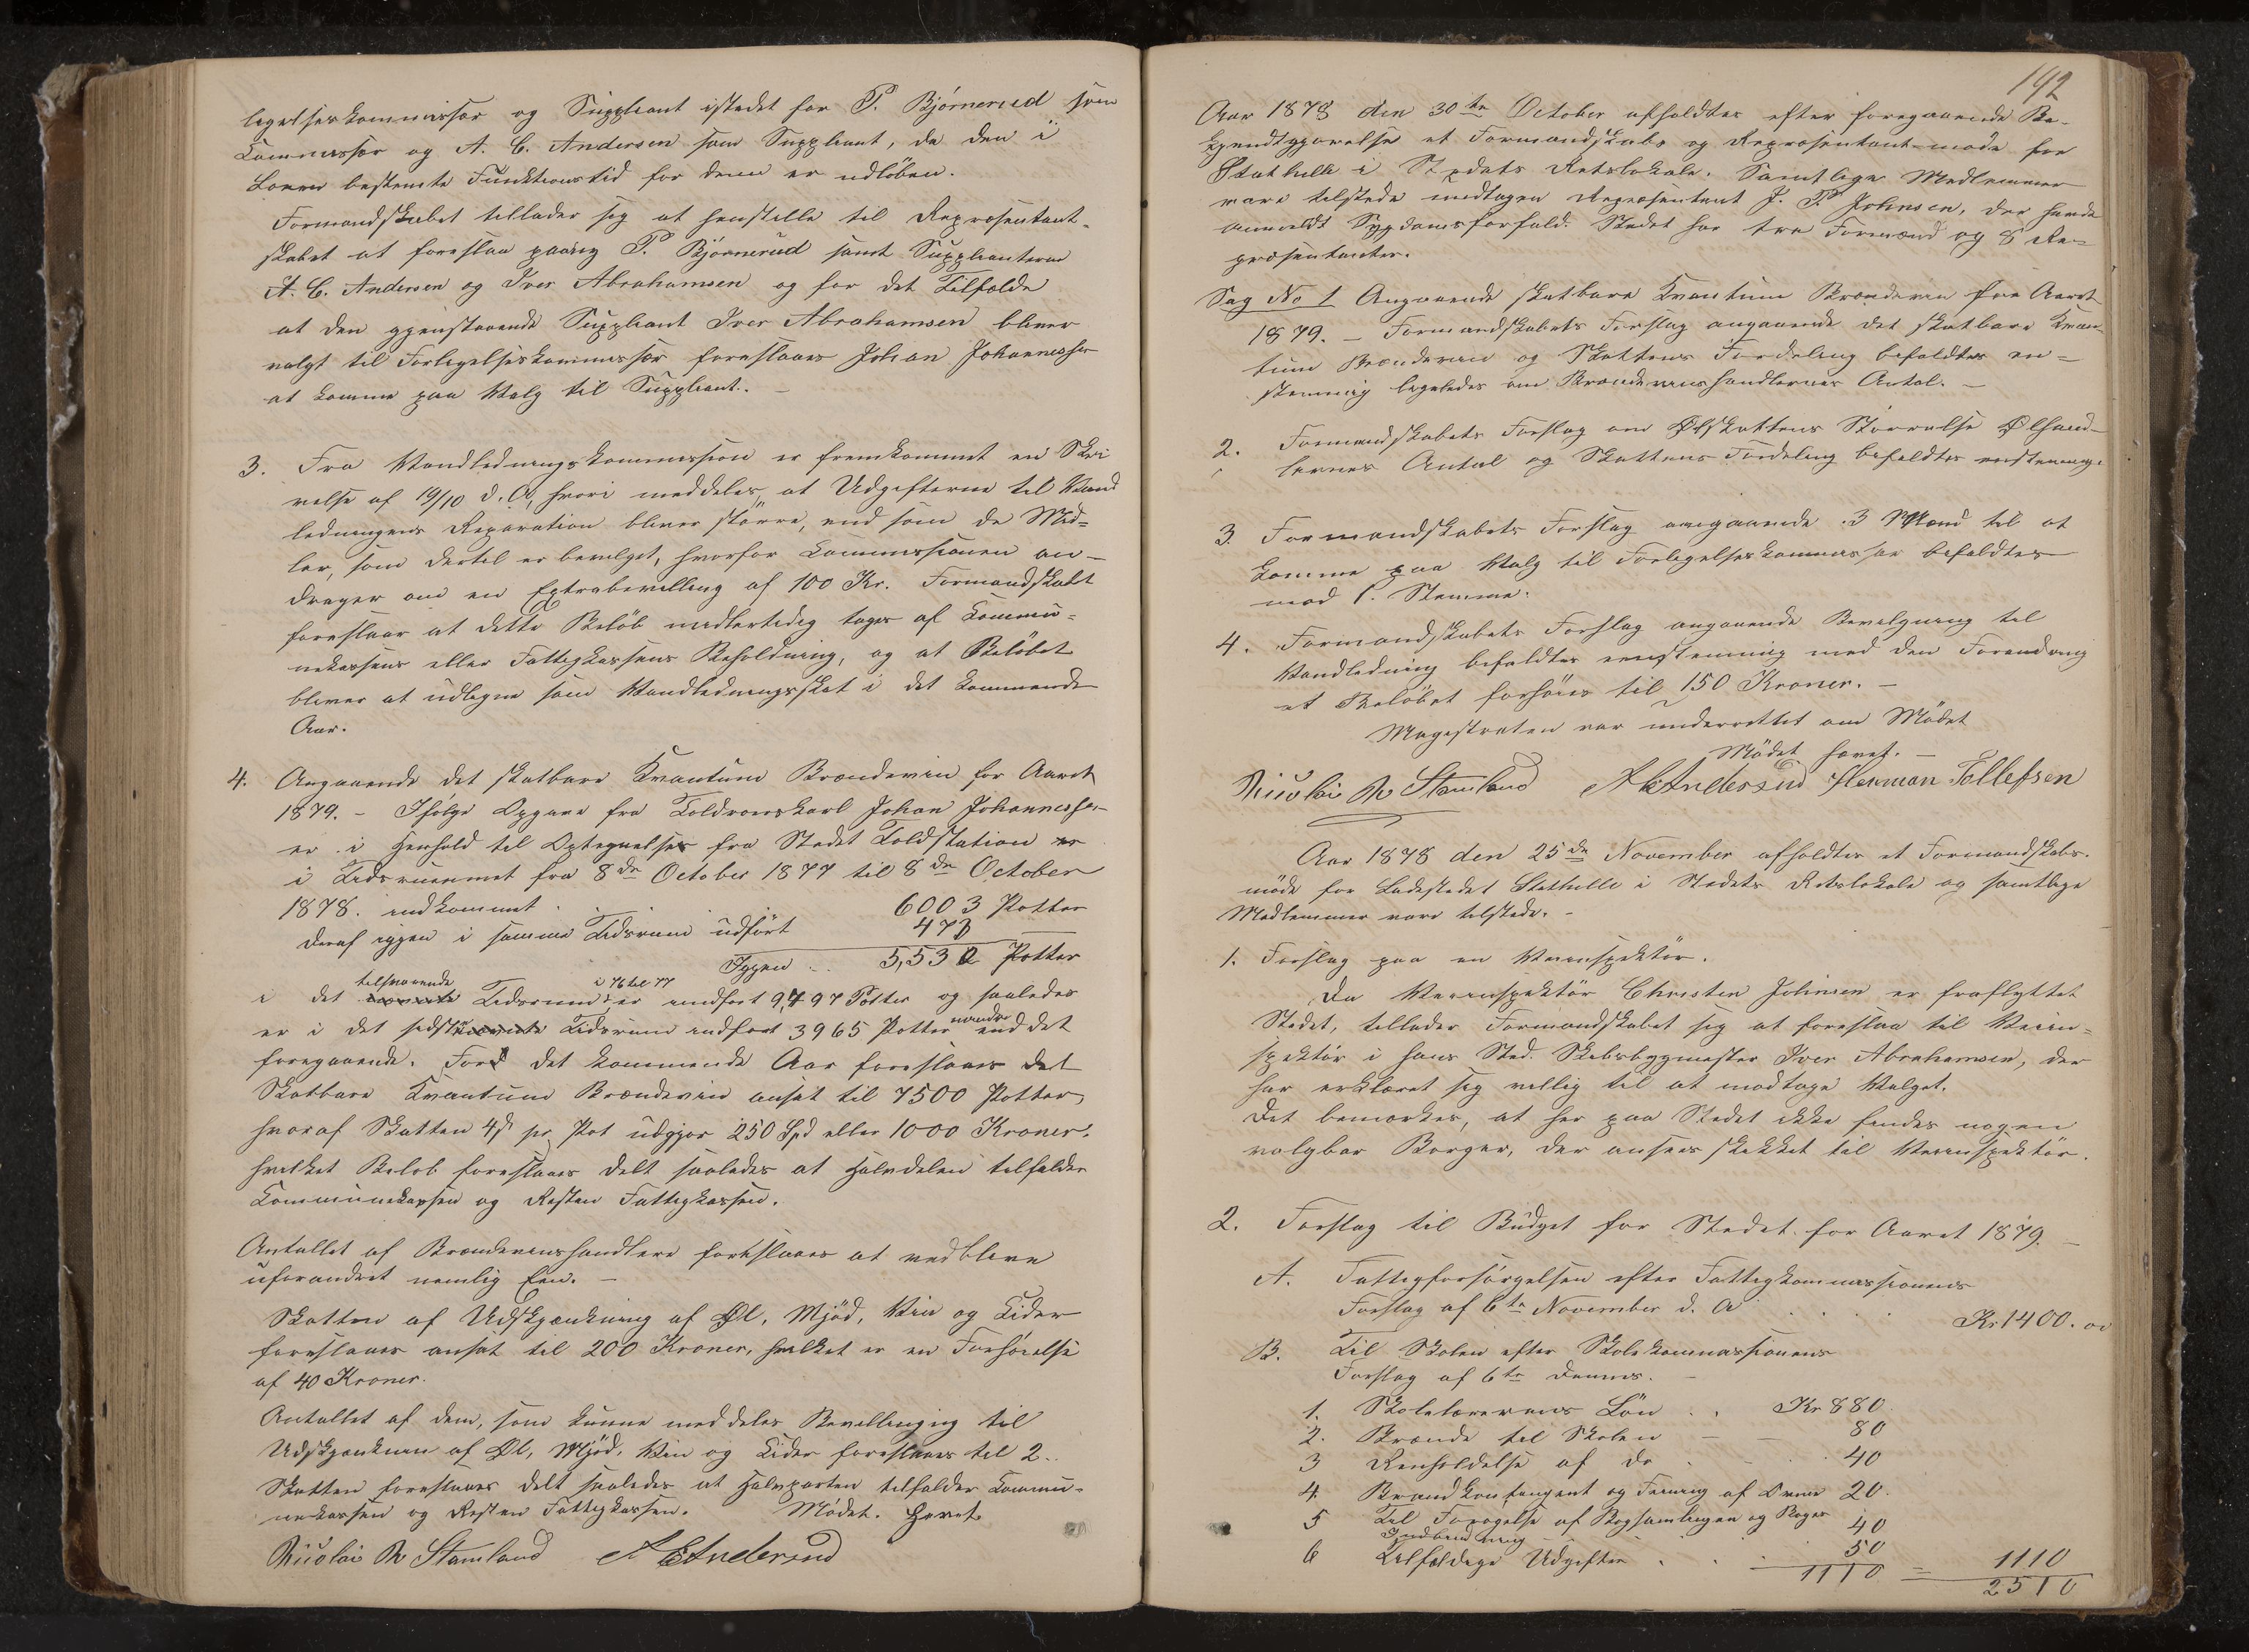 ligelseskommissær og Suppleant istedet for P. Bjørnerud som
Kommissær og A. C. Andersen som Suppleant, da den i
Loven bestemte Funktionstid for dem er udløben.
Formandskabet tillader sig at henstille til Repræsentant-
skabet at foreslaa paany P. Bjørnerud samt Suppleanterne
A. C. Andersen og Iver Abrahamsen og for det Tilfælde
at den gjenstaaende Suppleant Iver Abrahamsen bliver
valgt til Forligelseskommissær foreslaaes Johan Johannessen
at komme paa Valg til Suppleant. -
3. Fra Vandledningskommission er fremkommet en Skri
velse af 19/10 d. A, hvori meddeles, at Udgifterne til Vand
ledningens Reparation bliver større, end som de Mid=
ler, som dertil er bevilget, hvorfor Kommissionen an-
drager om en Extrabevilling af 100 Kr. Formandskabet
foreslaar at dette Beløb midlertidig tages af Kommu=
nekassens eller Fattigkassens Beholdning, og at Beløbet
bliver at udligne som Vandledningsskat i det kommende
Aar.
4. Angaaende det skatbare Kvantum Brændevin for Aaret
1879. - Ifølge Opgave fra Toldroerskarl Johan Johannessen
er i Henhold til Optegnelser fra Stedet Toldstation er
i Tidsrummet fra 8de October 1877 til 8de October
1878. indkommet . . 6003 Potter
deraf igjen i samme Tidsrum udført 473
Igjen .. 5,530 Potter
tilsvarende i 76 til 77
i det Tidsrum er indført 9,497 Potter og saaledes
er i det sidste Tidsrum indført 3965 Potter mindre end det
foregaaende. For det kommende Aar foreslaaes det
Skatbare Kvantum Brændevin ansat til 7500 Potter,
hvoraf Skatten 4 ß pr Pot udgjør 250 Spd eller 1000 Kroner.
hvilket Beløb foreslaaes delt saaledes at Halvdelen tilfalder
Kommunekassen og Resten Fattigkassen.
Antallet af Brændevinshandlere foreslaaes at vedblive
uforandret nemlig Een. -
Skatten af Udskjænkning af Øl, Mjød, Vin og Cider
foreslaaes ansat til 200 Kroner, hvilket er en Forhøielse
af 40 Kroner.
Antallet af dem, som kunne meddeles Bevillinging til
Udskjænknin af Øl, Mjød, Vin og Cider foreslaaes til 2..
Skatten foreslaaes delt saaledes at Halvparten tilfalder Kommu-
nekassen og Resten Fattigkassen. Mødet. Hævet
Nicolai M Stamland A C Andersen
192
Aar 1878 den 30te October afholdtes efter foregaaende Be-
kjendtgjørelse et Formandskabs og Repræsentant-møde for
Stathelle i Stedets Retslokale. Samtlige Medlemmer
vare tilstede undtagen Repræsentant J. P. Johnsen, der havde
anmeldt Sygdomsforfald. Stedet har tre Formænd og 8 Re-
præsentanter.
Sag No 1 Angaaende skatbare Kvantum Brændevin for Aaret
1879. - Formandskabets Forslag angaaende det skatbare Kvan-
tum Brændevin og Skattens Fordeling bifaldtes en=
stemmig ligeledes om Brændevinshandlernes Antal. -
2. Formandskabets Forslag om Ølskattens Størrelse Ølhand-
lernes Antal og Skattens Fordeling bifaldtes enstemmig.
3. Formandskabets Forslag angaaende 3 Mænd til at
komme paa Valg til Forligelseskommissær bifaldtes
mod 1. Stemme.
4. Formandskabets Forslag angaaende Bevilgning til
Vandledning bifaldtes eenstemmig med den Forandring
at Beløbet forhøies til 150 Kroner. -
Magistraten var underrettet om Mødet
Mødet hævet. -
Nicolai M Stamland A C Andersen Herman Tollefsen
Aar 1878 den 25de November afholdtes et Formandskabs-
møde for Ladestedet Stathelle i Stedets Retslokale og samtlige
Medlemmer vare tilstede. -
1. Forslag paa en Veiinspektør.
Da Veiinspektør Christen Johnsen er fraflyttet
Stedet, tillader Formandskabet sig at foreslaa til Veiin=
spektør i hans Sted. Skibsbygmester Iver Abrahamsen, der
har erklæret sig villig til at modtage Valget.
Det bemærkes, at her paa Stedet ikke findes nogen
valgbar Borger, der ansees skikket til Veiinspektør.
2. Forslag til Budget for Stedet for Aaret 1879. -
A. Fattigforsørgelsen efter Fattigkommissionens
Forslag af 6te November d. A . . . Kr 1400. oo
B. Til Skolen efter Skolekommissionens
Forslag af 6te dennes. -
1. Skolelærerens Løn . . Kr 880.
2. Brænde til Skolen - - 80
3 Renholdelse af do . - . 40
4. Brandkontingent og Feining af Ovne 20.
5 Til Forøgelse af Bogsamlingen og Bøgers
Indbinding 40
6 Tilfældige Udgifter . . . 50
1110 = 1110
2510